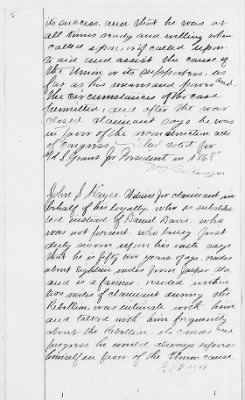 its success. and that he was at
all times ready and willing when
called upon, or if called upon
to aid and assist the cause of
the Union or its supporters. as
far as his means and power and
the circumstances of the case
permitted, and after the war
closed claimant says he was
in favor of the reconstruction acts
of Congress, and voted for
U. S. Grant for President in 1868
John S. Hayes. Witness for claimant in
behalf of his loyalty, who is substitu
ted instead of Daniel Davis. who
was not present. who being first
duly sworn upon his oath says
that he is fifty two years of age, resides
about eighteen miles from Jasper Ala
and is a farmer. resided within
two miles of claimant during the
Rebellion was intimate with him
and talked with him frequently
about the Rebellion its causes and
progress he would always express
himself in favor of the Union cause